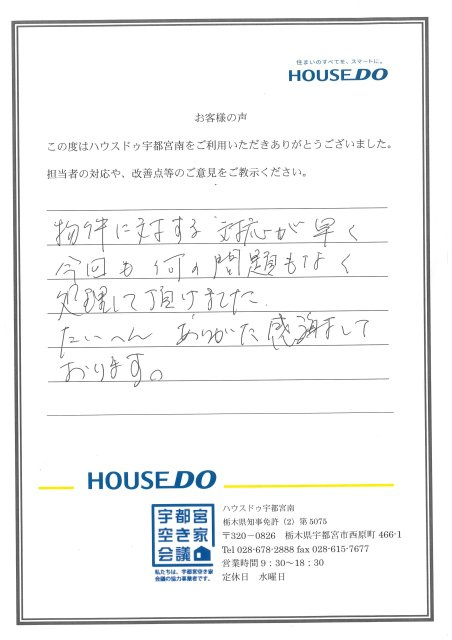 住まいのすべてを、スマートに。
HOUSEDO
お客様の声
この度はハウスドゥ宇都宮南をご利用いただきありがとうございました。
担当者の対応や、改善点等のご意見をご教示ください。
物件に対する対応が早く
今回も何の問題もなく
処理して頂けました
たいへんありがた感謝まして
おります。
HOUSEDO
宇都宮
空き家
会議
私たちは、宇都宮空き家
会議の協力事業者です。
ハウスドゥ宇都宮南
栃木県知事免許（2）第5075
〒320－0826　栃木県宇都宮市西原町 466-1
Tel 028-678-2888 fax 028-615-7677
営業時間 9：30～18：30
定休日　水曜日